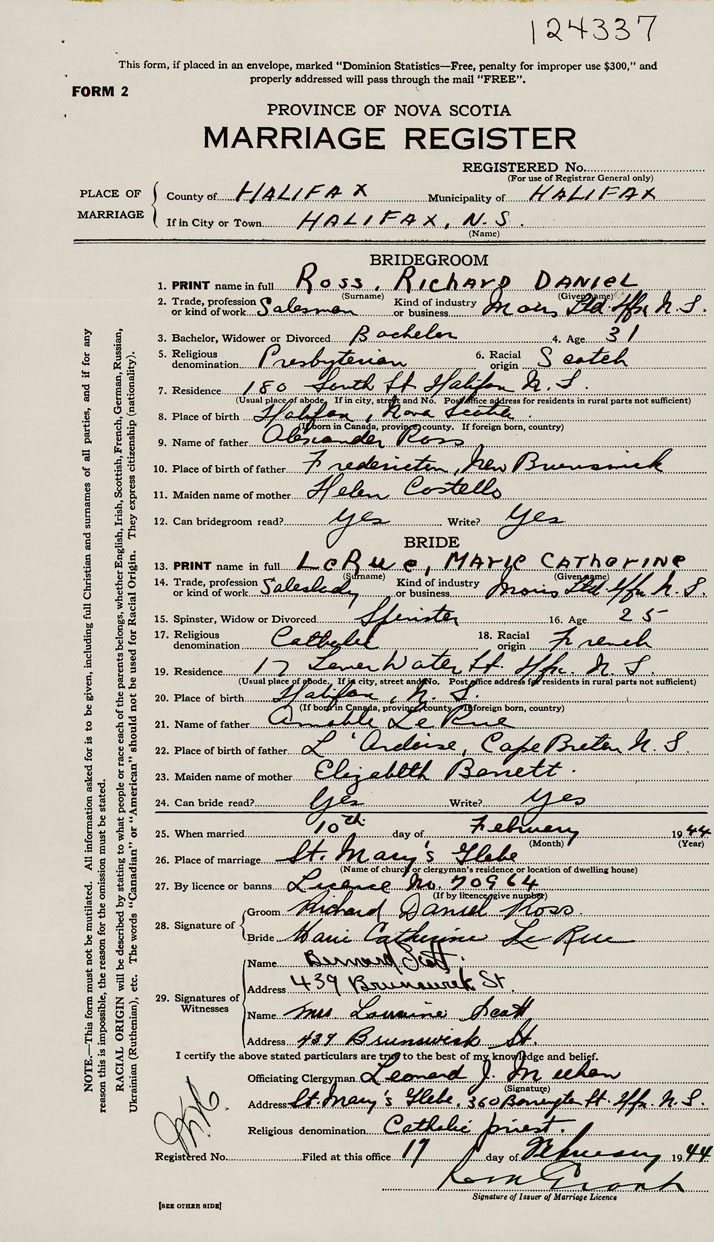 124337
This form, if placed in an envelope, marked "Dominion Statistics—Free, penalty for improper use $300," and
properly addressed will pass through the mail "FREE".
FORM 2
PROVINCE OF NOVA SCOTIA
MARRIAGE REGISTER
REGISTERED No.
(For use of Registrar General only)
PLACE OF MARRIAGE
County of HALIFAX Municipality of HALIFAX
If in City or Town HALIFAX, N.S.
(Name)
BRIDEGROOM
1. PRINT name in full ROSS, RICHARD DANIEL
(Surname) (Given name)
2. Trade, profession or kind of work Salesman Kind of industry or business Moirs Ltd Hfx N.S.
3. Bachelor, Widower or Divorced Bachelor 4. Age 31
5. Religious denomination Presbyterian 6. Racial origin Scotch
7. Residence 180 South St. Halifax N.S.
(Usual place of abode. If in city, street and No. Post office address for residents in rural parts not sufficient)
8. Place of birth Halifax, Nova Scotia.
(If born in Canada, province, county. If foreign born, country)
9. Name of father Alexander Ross
10. Place of birth of father Fredericton, New Brunswick
11. Maiden name of mother Helen Costello
12. Can bridegroom read? yes Write? Yes
BRIDE
13. PRINT name in full LeRue, MARIE CATHERINE
(Surname) (Given name)
14. Trade, profession or kind of work Saleslady Kind of industry or business Moirs Ltd Hfx N.S.
15. Spinster, Widow or Divorced Spinster 16. Age 25
17. Religious denomination Catholic 18. Racial origin French
19. Residence 17 Lower Water St. Hfx. N.S.
(Usual place of abode. If in city, street and No. Post office address for residents in rural parts not sufficient)
20. Place of birth Halifax, N.S.
(If born in Canada, province, county. If foreign born, country)
21. Name of father Amable Le Rue
22. Place of birth of father L'Ardoise, Cape Breton N.S.
23. Maiden name of mother Elizabeth Barrett.
24. Can bride read? Yes Write? Yes
25. When married 10th day of February 1944
(Month) (Year)
26. Place of marriage St. Mary's Glebe
(Name of church or clergyman's residence or location of dwelling house)
27. By licence or banns License No. 70964
(If by licence, give number)
28. Signature of
Groom Richard Daniel Ross.
Bride Marie Catherine Le Rue
29. Signatures of Witnesses
Name Bernard Scott.
Address 439 Brunswick St.
Name Mrs Lorraine Scott
Address 439 Brunswick St.
I certify the above stated particulars are true to the best of my knowledge and belief.
Officiating Clergyman Leonard J. Meehan
(Signature)
Address St. Mary's Glebe, 360 Barrington St. Hfx. N.S.
Religious denomination Catholic priest.
Registered No. Filed at this office 17 day of February 1944
Signature of Issuer of Marriage Licence
[SEE OTHER SIDE]
NOTE.—This form must not be mutilated. All information asked for is to be given, including full Christian and surnames of all parties, and if for any
reason this is impossible, the reason for the omission must be stated.
RACIAL ORIGIN will be described by stating to what people or race each of the parents belongs, whether English, Irish, Scottish, French, German, Russian,
Ukrainian (Ruthenian), etc. The words "Canadian" or "American" should not be used for Racial Origin. They express citizenship (nationality).